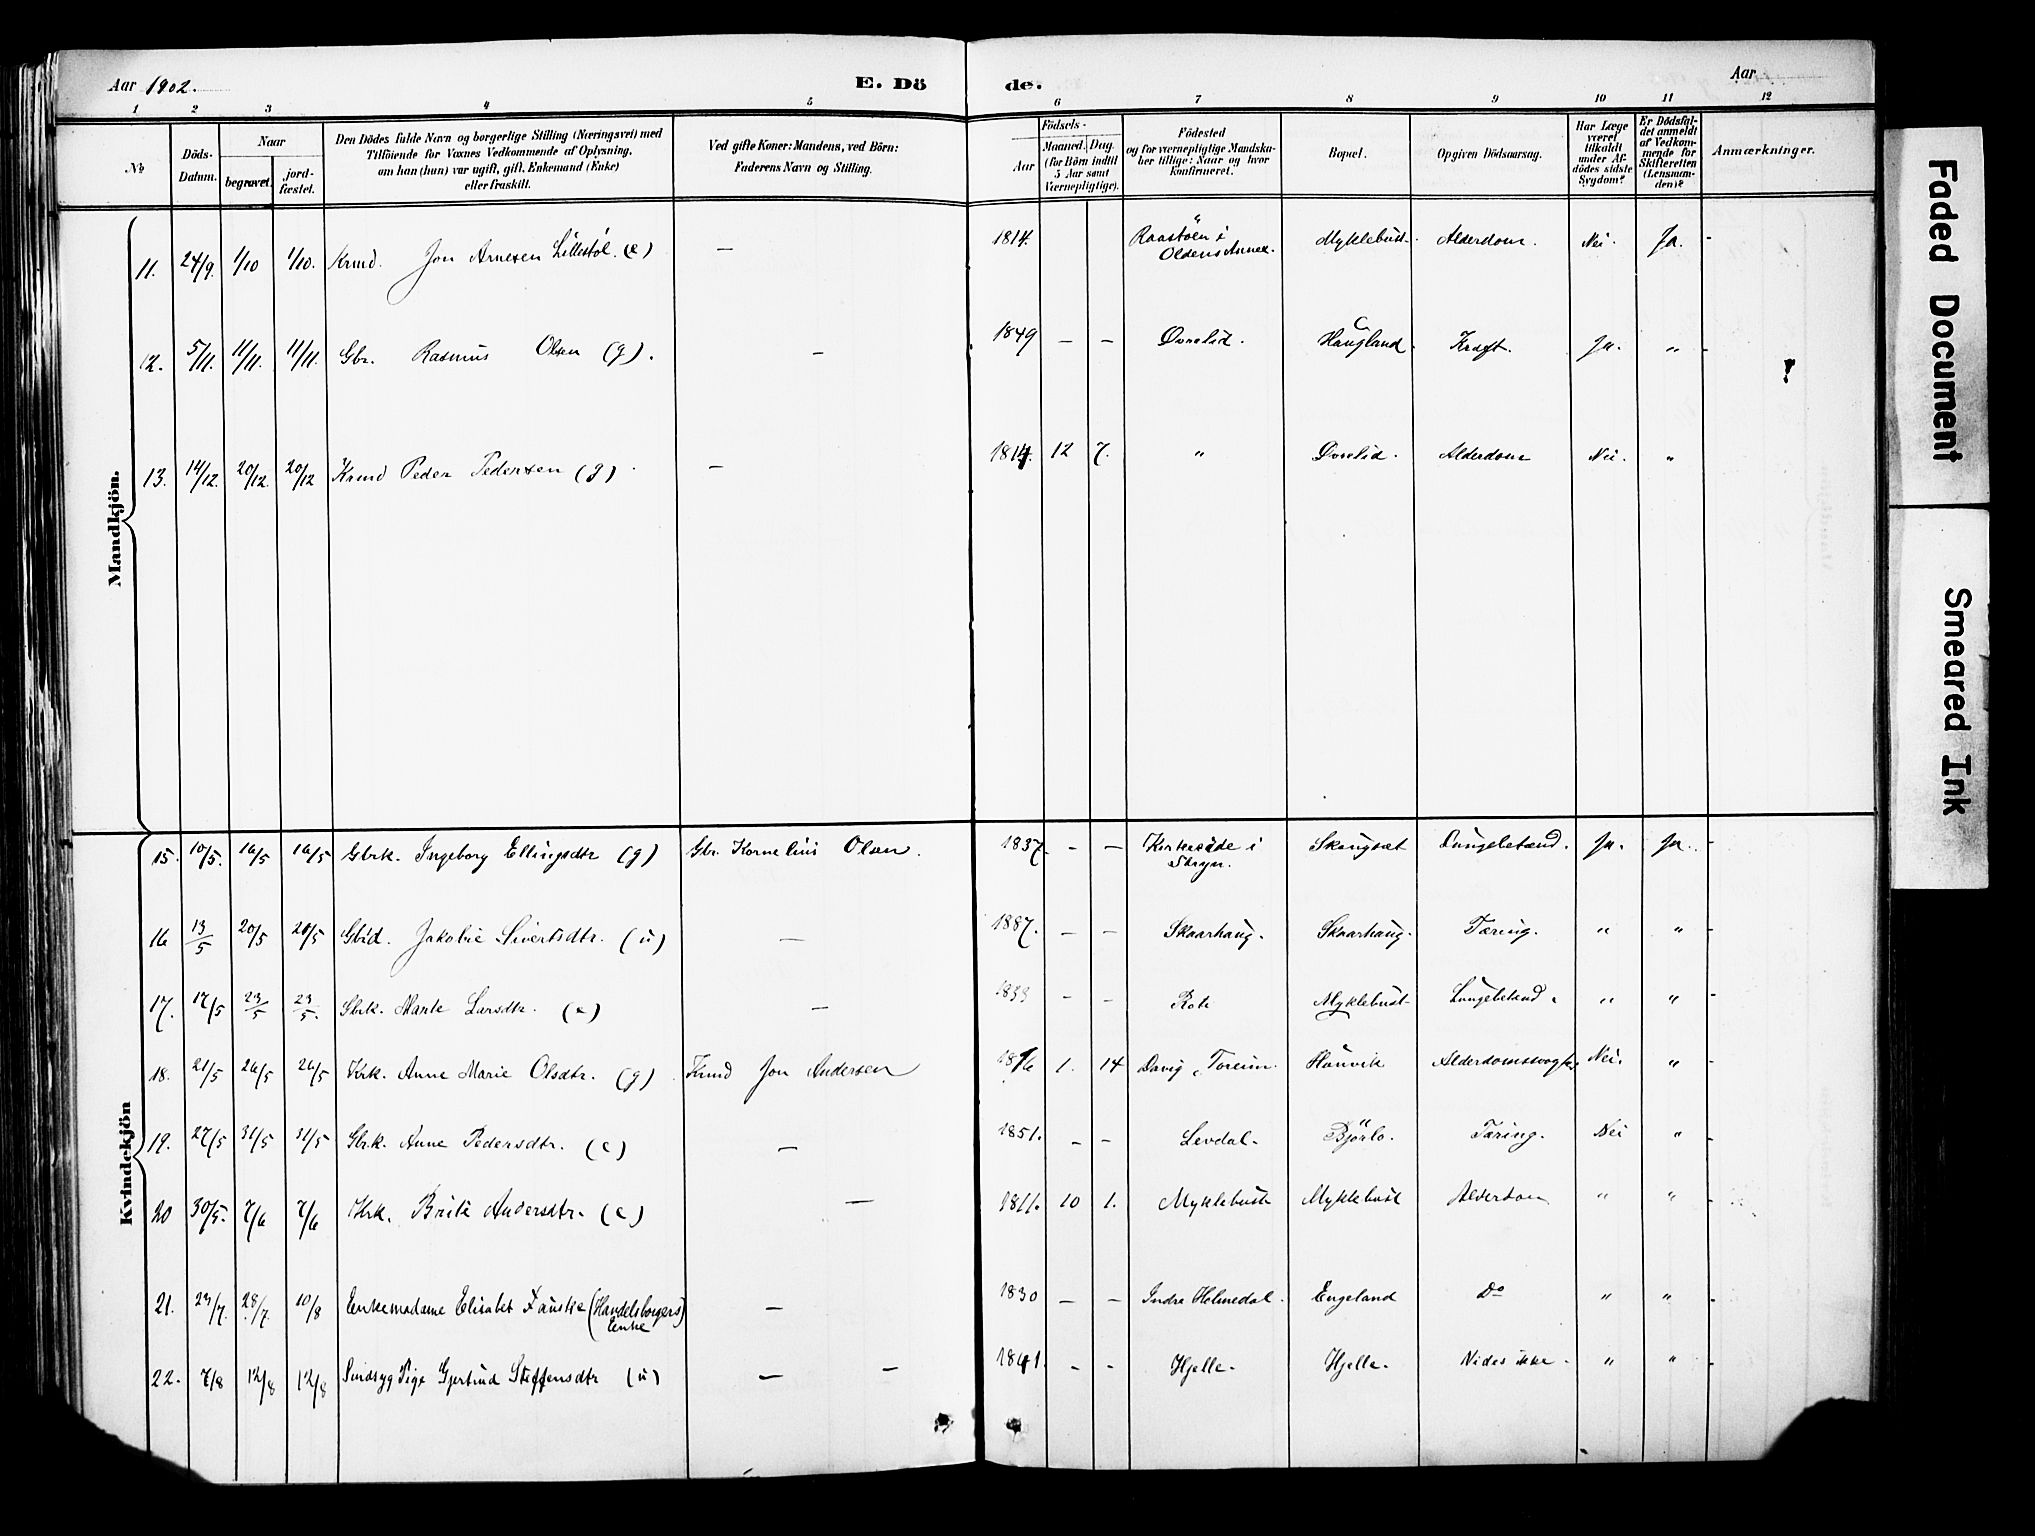 Aar 1902.
E. Dö
de.
Aar
1 2 3 4 5 6 7 8 9 10 11 12
№
Döds-Datum.
Naar
begravet.
jord-fæstet.
Den Dödes fulde Navn og borgerlige Stilling (Næringsvei) med
Tilföiende for Voxnes Vedkommende af Oplysning,
om han (hun) var ugift, gift, Enkemand (Enke)
eller fraskilt.
Ved gifte Koner: Mandens, ved Börn:
Faderens Navn og Stilling.
Födsels-
Aar
Maaned. Dag.
(for Börn indtil
5 Aar samt
Værnepligtige).
Födested
og for værnepligtige Mandska-
ber tillige: Naar og hvor
konfirmeret.
Bopæl.
Opgiven Dödsaarsag.
Har Læge
været
tilkaldt
under Af-
dödes sidste
Sygdom?
Er Dödsfal-
det anmeldt
af Vedkom-
mende for
Skifteretten
(Lensman-
den)?
Anmærkninger.
Mandkjön.
11. 24/9. 1/10 1/10. Krmd. Jon Arnesen Lillestöl. (e) — 1814. Raastölen i Myklebust. Alderdom. Nei. Ja. -
Oldens Annex.
12. 5/11. 11/11. 11/11. Gbr. Rasmus Olsen (g). — 1849 — — Övrelid. Haugland. Kræft. Ja. " -
13. 14/12. 20/12. 20/12 Krmd Peder Pedersen (g) — 1814. 12 7. " Övrelid. Alderdom Nei. "
Kvindekjön
15. 10/5. 16/5 16/5 Gbrk. Ingeborg Ellingsdtr (g) Gbr. Kornelius Olsen. 1837. — — Kirkeeide i Skaugset Lungebetænd. Ja. Ja. -
Stryn.
16 13/5 20/5 20/5 Gbrd. Jakobie Sivertsdtr. (u) — 1887. — — Skaarhaug. Skaarhaug. Tæring. " " -
17. 17/5 23/5 23/5. Gbrk. Marte Larsdtr. (e) — 1833 — — Rote Myklebust Lungebetænd. " " -
18. 21/5 26/5 26/5 Krk. Anne Marie Olsdtr. (g) Krmd Jon Andersen 1816 1. 14 Davig, Toreim. Hauvik Alderdomssvaghed Nei. "
19. 27/5 31/5 31/5 Gbrk. Anne Pedersdtr. (e) — 1851. — — Levdal. Björlo. Tæring. Nei " -
20 30/5. 7/6 7/6 Krk. Brite Andersdtr. (e) — 1811. 10 1. Myklebust Myklebust Alderdom " " -
21. 23/7. 28/7. 10/8 Enkemadame Elisabet Fauske (Handelsborgers — 1830 — — Indre Holmedal. Engeland Do " " -
Enke)
22. 7/8 12/8 12/8 Sindssyg Pige Gjertrud Steffensdtr (u) — — 1841. — — Hjelle. Hjelle. Vides ikke. " " -
Faded Document
Smeared Ink